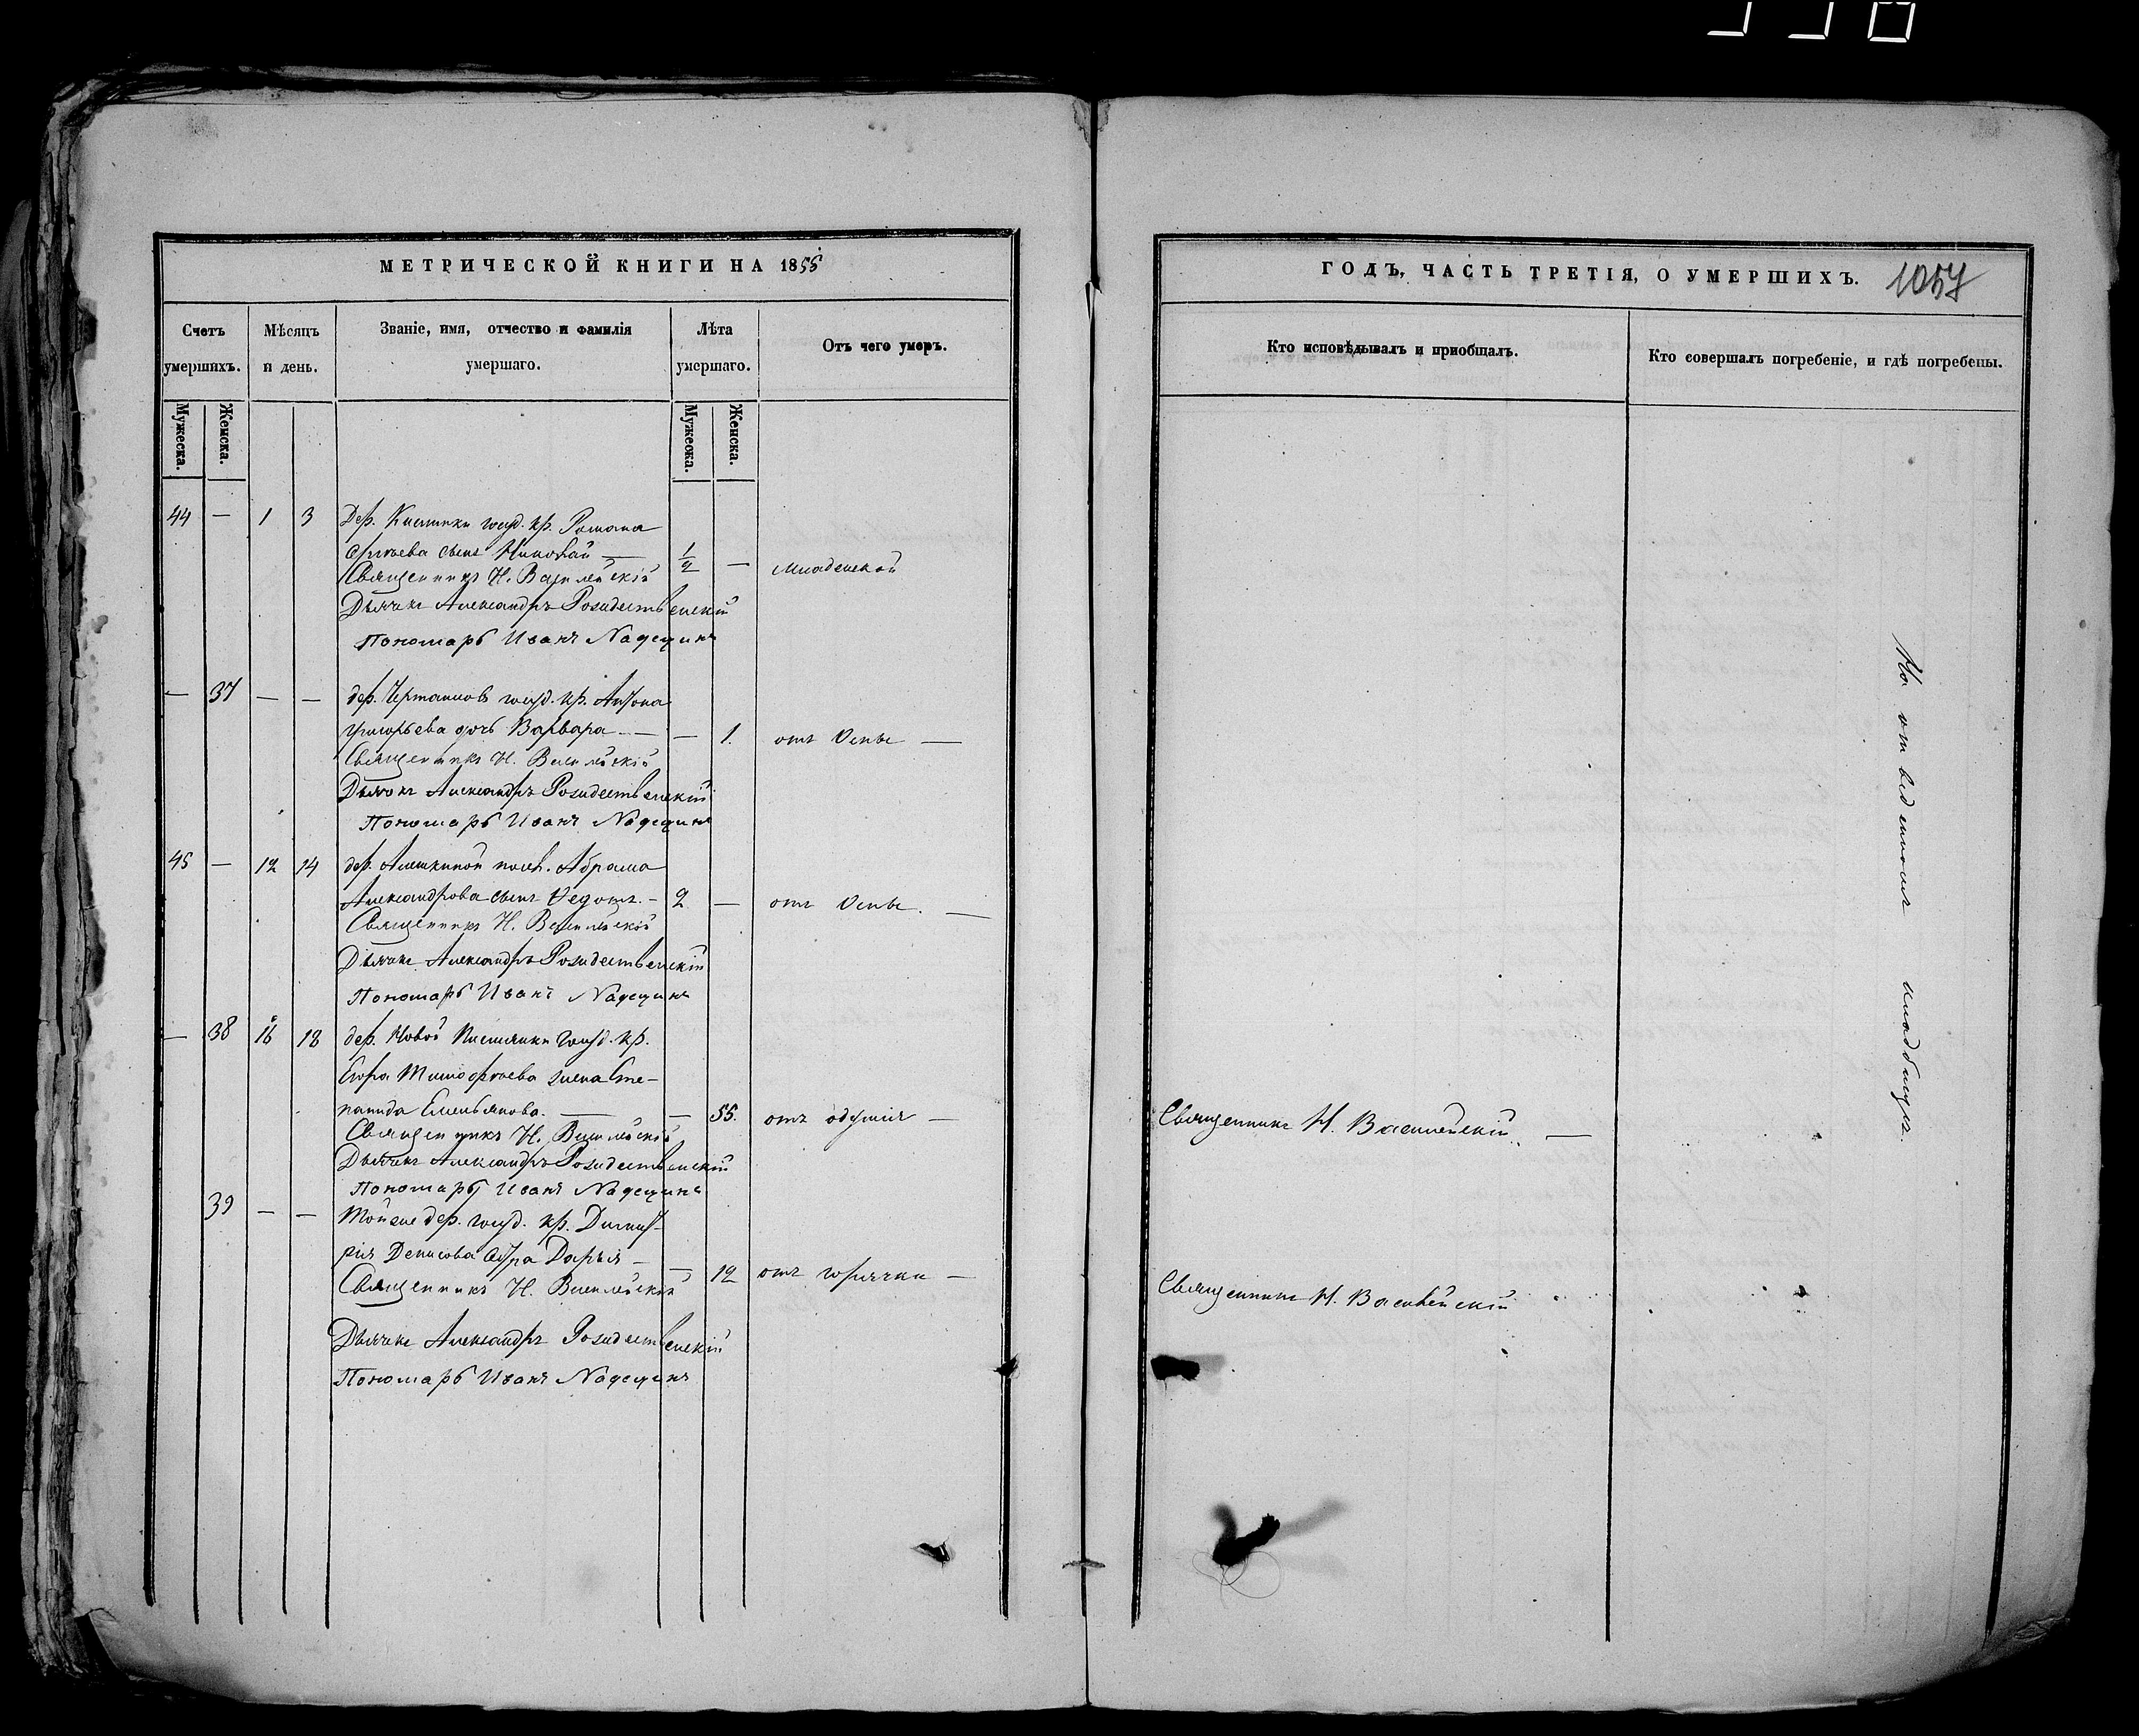 МЕТРИЧЕСКОЙ КНИГИ НА 1855
Счетъ умершихъ.
Мѣсяцъ и день.
Званіе, имя, отчество и фамилія умершаго.
Лѣта умершаго.
Отъ чего умеръ.
Мужеска.
Женска.
Мужеска.
Женска.
44 — 1 3 Дер. гусд. кр. Романа
Сергѣева сынъ Николай —
Священникъ Н. Васильевскій — младенской
Дьячекъ Александръ Рождественскій
Пономарь Иванъ Надеждинъ
— 37 — — дер. кр. Антона
Григорьева дочь Варвара — — 1. отъ Оспы —
Священникъ Н. Васильевскій
Дьячекъ Александръ Рождественскій
Пономарь Иванъ Надеждинъ
45 — 12 14 дер. Алешкиной Абрама
Александрова сынъ Ѳедотъ. — 2 — отъ Оспы. —
Священникъ Н. Васильевскій
Дьячекъ Александръ Рождественскій
Пономарь Иванъ Надеждинъ
— 38 16 18 дер. Новой кр.
Егора Тимофѣева жена Сте-
панида Емельянова. — — 55. отъ удушія —
Священникъ Н. Васильевскій
Дьячекъ Александръ Рождественскій
Пономарь Иванъ Надеждинъ
39 — — Тойже дер. кр. Димит-
рія Денисова сестра Дарья — — 12 отъ горячки —
Священникъ Н. Васильевскій
Дьячекъ Александръ Рождественскій
Пономарь Иванъ Надеждинъ
ГОДЪ, ЧАСТЬ ТРЕТІЯ, О УМЕРШИХЪ. 1057
Кто исповѣдывалъ и пріобщалъ.
Кто совершалъ погребеніе, и гдѣ погребены.
Священникъ Н. Васильевскій. —
Священникъ Н. Васильевскій
На отведенномъ кладбищѣ.